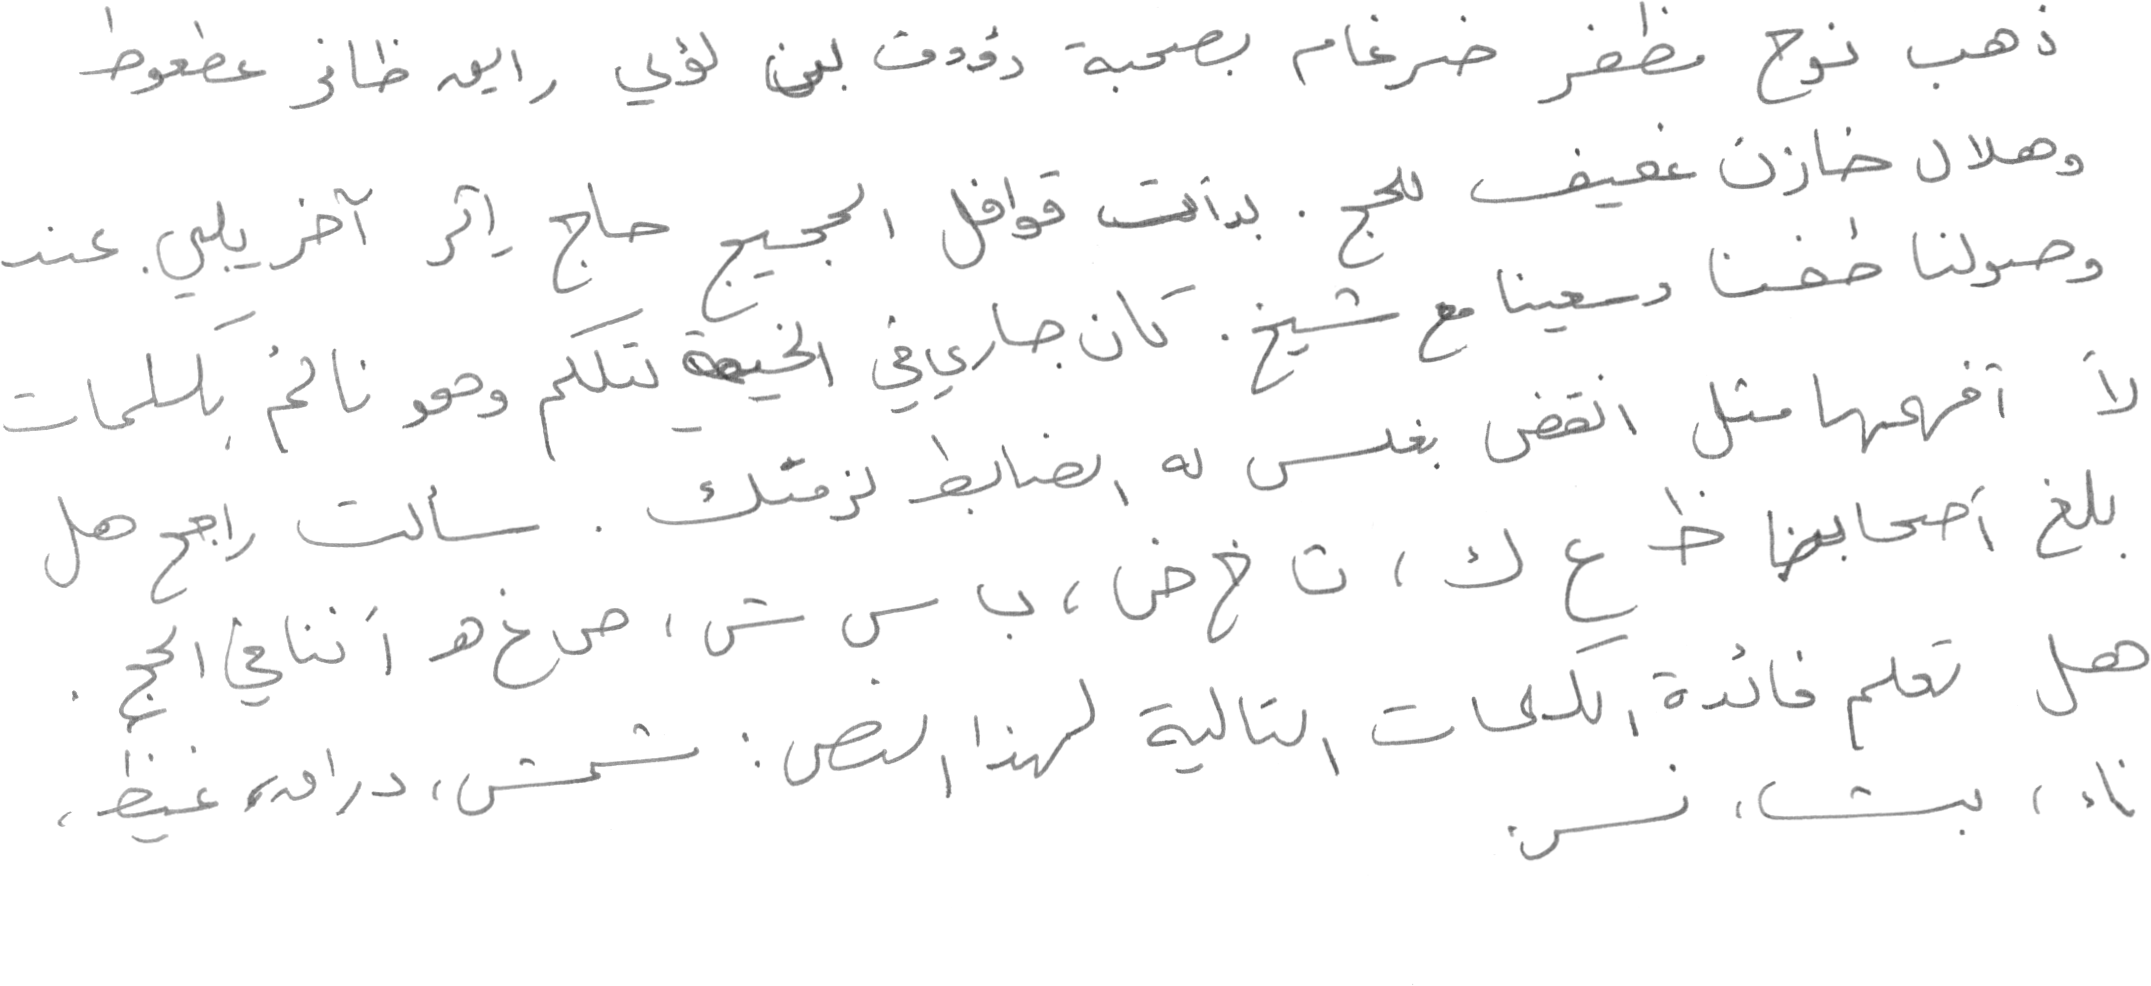 ذهب نوح مظفر ضرغام بصحبة رؤوف بن لؤي رايق ظافر عطعوط
وهلال خازن عفيف للحج. بدأت قوافل الحجيج حاج إثر آخر يلبي. عند
وصولنا طفنا وسعينا مع شيخ. كان جاري في الخيمة يتكلم وهو نائم بكلمات
لا أفهمها مثل انقض بغلس له الضابط لزمتك. سألت راجح هل
بلغ أصحابنا ظ ع ك، ث خ ض، ب س ش، ص غ ه أننا في الحج.
هل تعلم فائدة الكلمات التالية لهذا النص: شمش، دراق، غيظ،
ناء، بث، نس